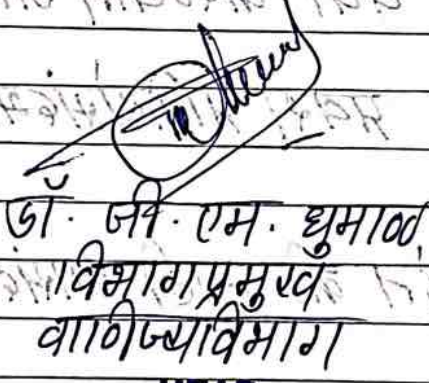 डॉ. जी. एम. धुमाळ,
विभाग प्रमुख
वाणिज्य विभाग